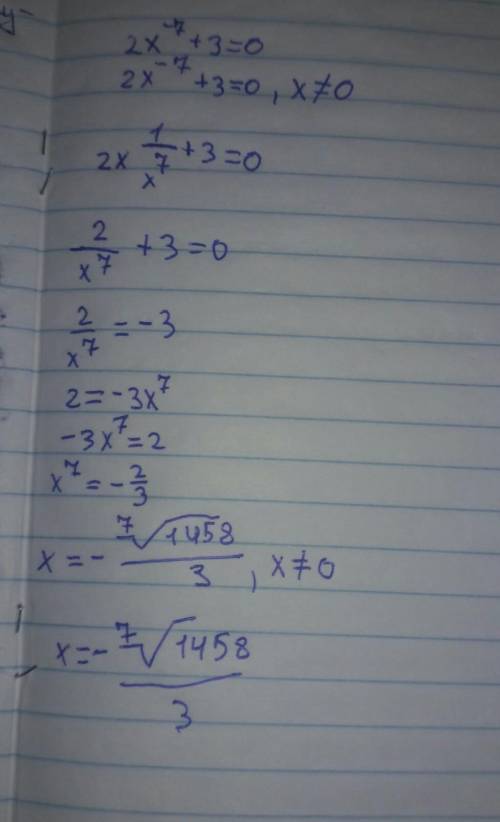 y-
2x⁻⁷+3=0
2x⁻⁷+3=0, x≠0
2x 1/x⁷+3=0
2/x⁷+3=0
2/x⁷=-3
2=-3x⁷
-3x⁷=2
x⁷=-2/3
x=-⁷√1458/3, x≠0
x=-⁷√1458/3